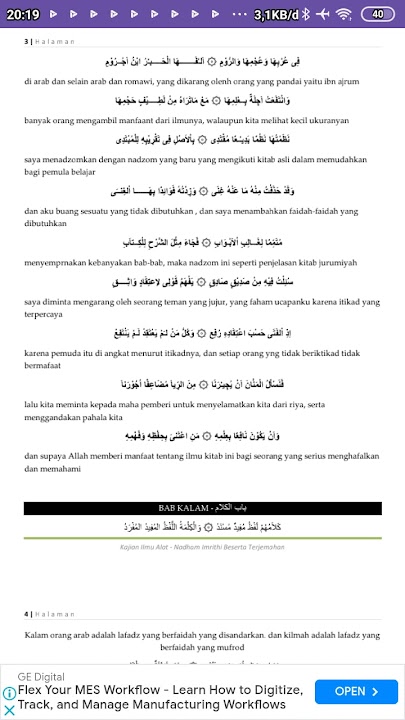 20:19
3,1KB/d
40
3 | Halaman
فِى عُرْبِهَا وَعُجْمِهَا وَالرُّوْمِ ۞ أَلَّفَـــهَا الْحَـــبْرُ ابْنُ آجُرُّوْمِ
di arab dan selain arab dan romawi, yang dikarang olenh orang yang pandai yaitu ibn ajrum
وَانْتَفَعَتْ أَجِلَّةٌ بِـعِلْمِهَا ۞ مَعْ مَاتَرَاهُ مِنْ لَطِـــيْفِ حَجْمِهَا
banyak orang mengambil manfaant dari ilmunya, walaupun kita melihat kecil ukuranyan
نَظَمْتُهَا نَظْمًا بَدِيـــعًا مُقْتَدِى ۞ بِاْلأَصْلِ فِى تَقْرِيْبِهِ لِلْمُبْتَدِى
saya menadzomkan dengan nadzom yang baru yang mengikuti kitab asli dalam memudahkan
bagi pemula belajar
وَقَدْ حَذَفْتُ مِنْهُ مَا عَنْهُ غِنَى ۞ وَزِدْتُهُ فَوَائِدًا بِهَـــا الْغِنَـى
dan aku buang sesuatu yang tidak dibutuhkan , dan saya menambahkan faidah-faidah yang
dibutuhkan
مُتَمِّمًا لِغَـــالِبِ اْلأَبْـوَابِ ۞ فَجَاءَ مِثْلَ الشَّرْحِ لِلْكِــتَابِ
menyemprnakan kebanyakan bab-bab, maka nadzom ini seperti penjelasan kitab jurumiyah
سُئِلْتُ فِيْهِ مِنْ صَدِيْقٍ صَادِقِ ۞ يَفْهَمُ قَوْلِى لاِعْتِقَادٍ وَاثِـــقِ
saya diminta mengarang oleh seorang teman yang jujur, yang faham ucapanku karena itikad yang
terpercaya
إِذِ الْفَتَى حَسْبَ اعْتِقَادِهِ رُفِعْ ۞ وَكُلُّ مَنْ لَـمْ يَعْتَقِدْ لَـمْ يَنْتَفِعْ
karena pemuda itu di angkat menurut itikadnya, dan setiap orang yng tidak beriktikad tidak
bermafaat
فَنَسْأَلُ الْمَنَّانَ أَنْ يُجِيْرَنَا ۞ مِنَ الرِّيَا مُضَاعِفًا أُجُوْرَنَا
lalu kita meminta kepada maha pemberi untuk menyelamatkan kita dari riya, serta
menggandakan pahala kita
وَأَنْ يَكُوْنَ نَافِعًا بِعِلْمِهِ ۞ مَنِ اعْتَنَى بِحِفْظِهِ وَفَهْمِهِ
dan supaya Allah memberi manfaat tentang ilmu kitab ini bagi seorang yang serius menghafalkan
dan memahami
BAB KALAM - باب الكلام
كَلاَمُهُمْ لَفْظٌ مُفِيْدٌ مُسْنَدُ ۞ وَالْكِلْمَةُ اللَّفْظُ الْمُفِيْدُ الْمُفْرَدُ
Kajian Ilmu Alat - Nadhom Imrithi Beserta Terjemahan
4 | Halaman
Kalam orang arab adalah lafadz yang berfaidah yang disandarkan. dan kilmah adalah lafadz yang
berfaidah yang mufrod
GE Digital
Flex Your MES Workflow - Learn How to Digitize,
Track, and Manage Manufacturing Workflows
OPEN